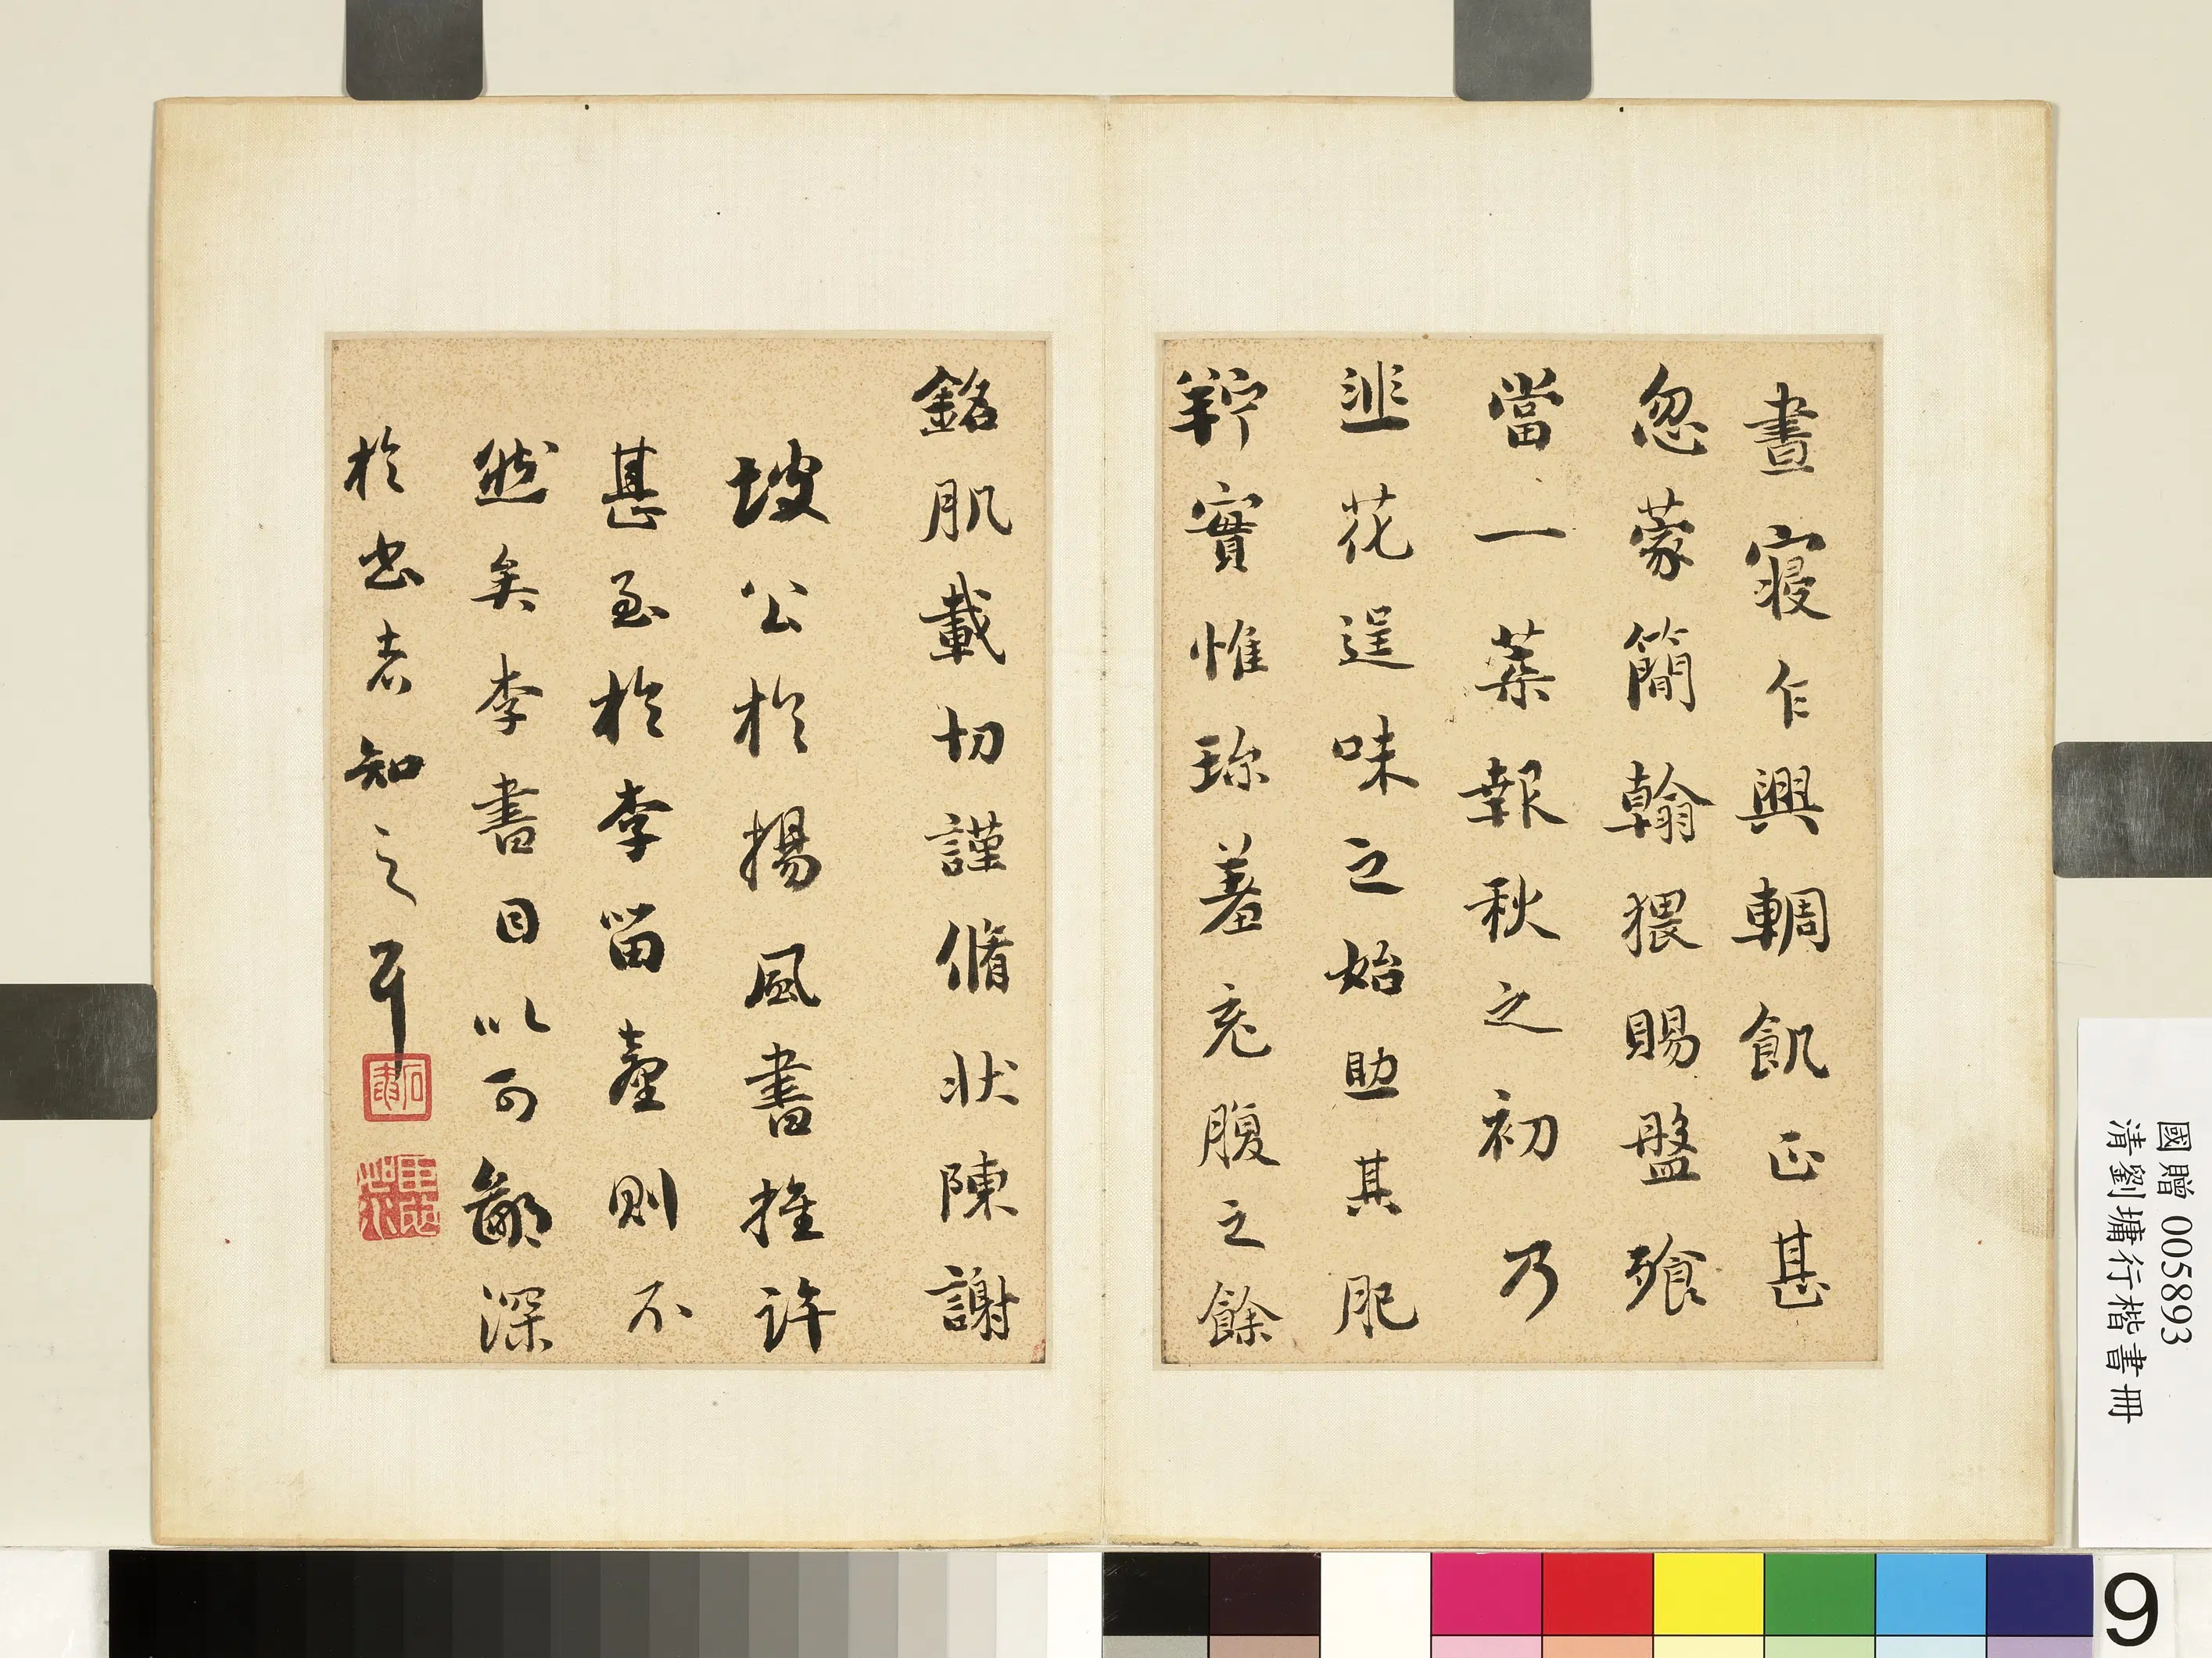 晝寢乍興輖飢正甚
忽蒙簡翰猥賜盤飱
當一葉報秋之初乃
韭花逞味之始助其肥
羜實惟珎羞充腹之餘
銘肌載切謹脩状陳謝
坡公於揚風書推許
甚至於李留臺則不
然矣李書目以可鄙深
於书者知之耳
石庵
國贈 005893
清劉墉行楷書冊
9